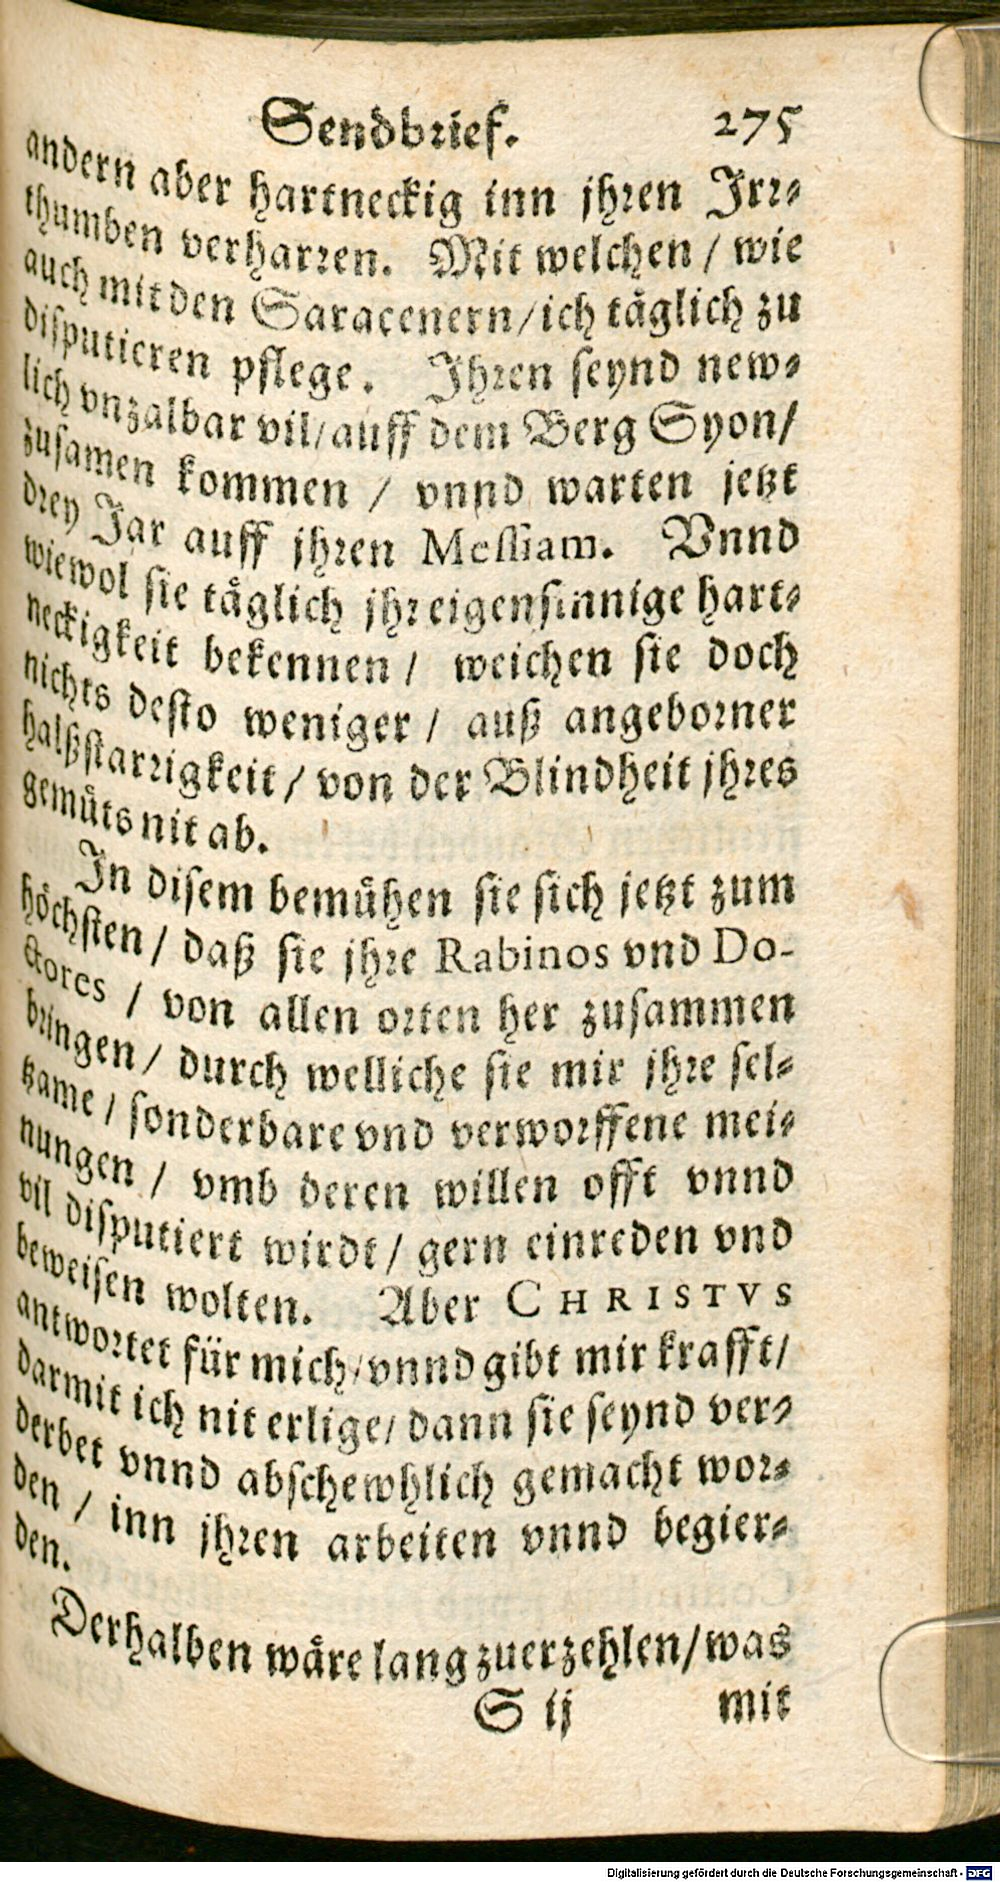 Sendbrief. 275
andern aber hartneckig inn jhren Irr-
thumben verharren. Mit welchen / wie
auch mit den Saracenern / ich täglich zu
disputieren pflege. Ihren seynd new-
lich vnzalbar vil / auff dem Berg Syon /
zusamen kommen / vnnd warten jetzt
drey Jar auff jhren Messiam. Vnnd
wiewol sie täglich jhr eigensinnige hart-
neckigkeit bekennen / weichen sie doch
nichts desto weniger / auß angeborner
halßstarrigkeit / von der Blindheit jhres
gemüts nit ab.
In disem bemühen sie sich jetzt zum
höchsten / daß sie jhre Rabinos vnd Do-
ctores / von allen orten her zusammen
bringen / durch welliche sie mir jhre sel-
tzame / sonderbare vnd verworffene mei-
nungen / vmb deren willen offt vnnd
vil disputiert wirdt / gern einreden vnd
beweisen wolten. Aber CHRISTVS
antwortet für mich / vnnd gibt mir krafft /
darmit ich nit erlige / dann sie seynd ver-
derbet vnnd abschewhlich gemacht wor-
den / inn jhren arbeiten vnnd begier-
den.
Derhalben wäre lang zuerzehlen / was
S ij mit
Digitalisierung gefördert durch die Deutsche Forschungsgemeinschaft - DFG